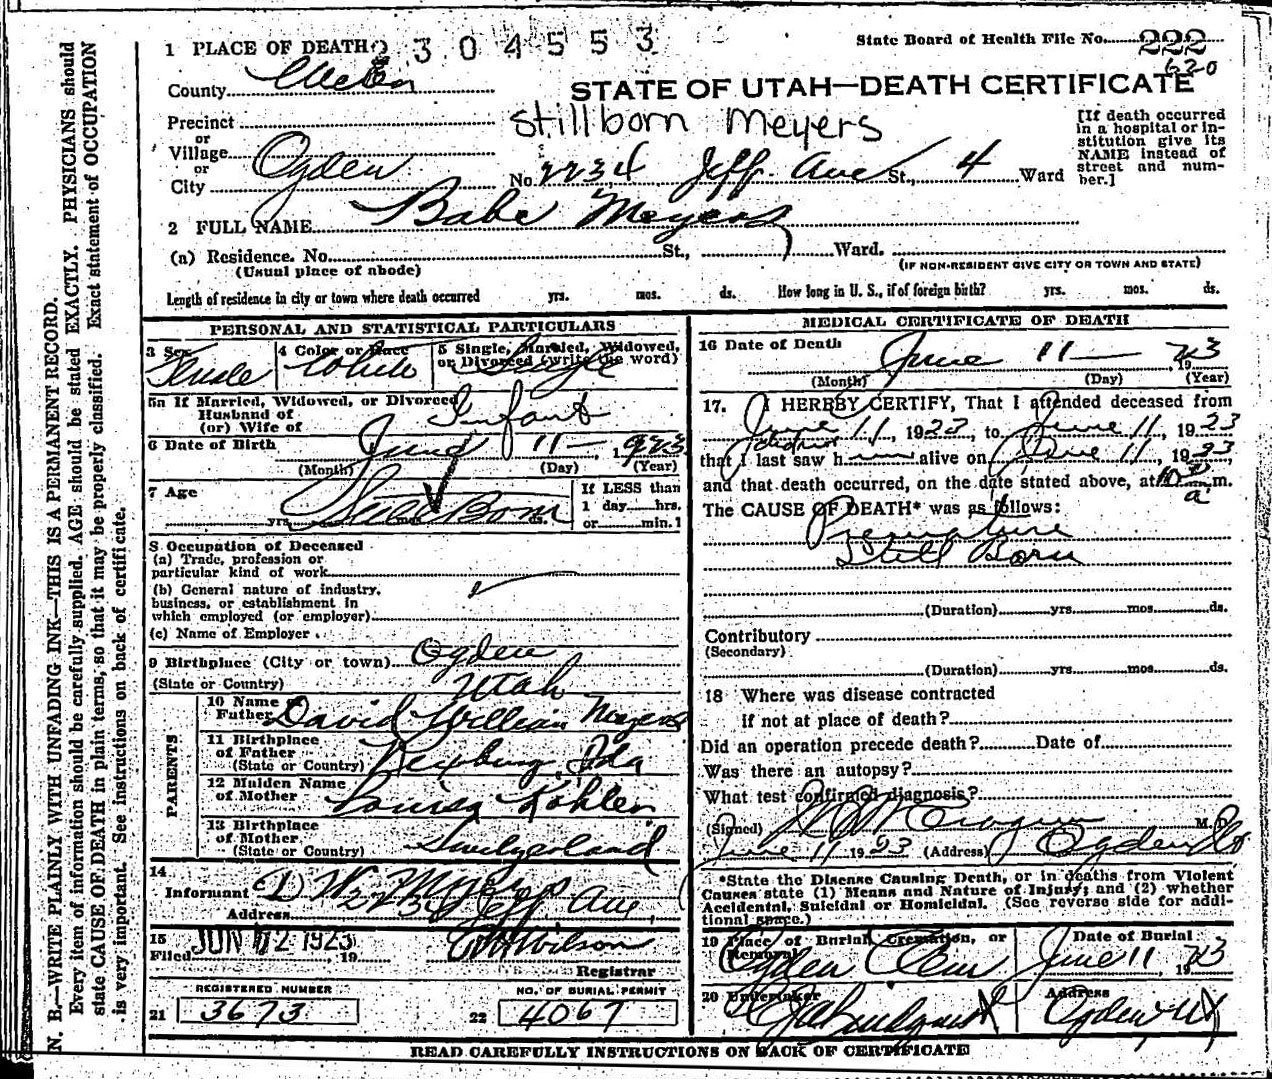 2304553
State Board of Health File No. 222
620
1 PLACE OF DEATH
County Weber
STATE OF UTAH—DEATH CERTIFICATE
Precinct
or
Village
or
City Ogden
Stillborn Meyers
No. 2234 Jeff. Ave St., 4 Ward
[If death occurred
in a hospital or in-
stitution give its
NAME instead of
street and num-
ber.]
2 FULL NAME Babe Meyers
(a) Residence. No. St., Ward.
(Usual place of abode)
(IF NON-RESIDENT GIVE CITY OR TOWN AND STATE)
Length of residence in city or town where death occurred yrs. mos. ds. How long in U. S., if of foreign birth? yrs. mos. ds.
PERSONAL AND STATISTICAL PARTICULARS
3 Sex Female
4 Color or Race White
5 Single, Married, Widowed,
or Divorced (write the word) Single
5a If Married, Widowed, or Divorced
Husband of
(or) Wife of
Infant
6 Date of Birth June 11 — 1923
(Month) (Day) (Year)
7 Age Still Born
yrs. mos. ds.
If LESS than
1 day hrs.
or min.?
8 Occupation of Deceased
(a) Trade, profession or
particular kind of work
(b) General nature of industry,
business, or establishment in
which employed (or employer)
(c) Name of Employer
9 Birthplace (City or town) Ogden
(State or Country) Utah
PARENTS
10 Name of
Father David William Meyers
11 Birthplace
of Father
(State or Country) Rexburg, Ida
12 Maiden Name
of Mother Louisa Kohler
13 Birthplace
of Mother
(State or Country) Switzerland
14
Informant D W Meyers
Address 2234 Jeff Ave,
15
Filed JUN 12 1923, 19
Wilson
Registrar
REGISTERED NUMBER
21 3673
NO. OF BURIAL PERMIT
22 4067
MEDICAL CERTIFICATE OF DEATH
16 Date of Death June 11 — 1923
(Month) (Day) (Year)
17. I HEREBY CERTIFY, That I attended deceased from
June 11, 1923, to June 11, 1923
that I last saw h alive on June 11, 1923,
and that death occurred, on the date stated above, at a m.
The CAUSE OF DEATH* was as follows:
Premature
Still Born
(Duration) yrs. mos. ds.
Contributory
(Secondary)
(Duration) yrs. mos. ds.
18 Where was disease contracted
if not at place of death?
Did an operation precede death? Date of
Was there an autopsy?
What test confirmed diagnosis?
(Signed) M. D.
June 11 1923 (Address) Ogden
*State the Disease Causing Death, or in deaths from Violent
Causes state (1) Means and Nature of Injury; and (2) whether
Accidental, Suicidal or Homicidal. (See reverse side for addi-
tional space.)
19 Place of Burial, Cremation, or
Removal
Ogden Cem
Date of Burial
June 11, 1923
20 Undertaker
Lindquist
Address
Ogden Ut
READ CAREFULLY INSTRUCTIONS ON BACK OF CERTIFICATE
N. B.—WRITE PLAINLY WITH UNFADING INK—THIS IS A PERMANENT RECORD.
Every item of information should be carefully supplied. AGE should be stated EXACTLY. PHYSICIANS should
state CAUSE OF DEATH in plain terms, so that it may be properly classified. Exact statement of OCCUPATION
is very important. See instructions on back of certificate.